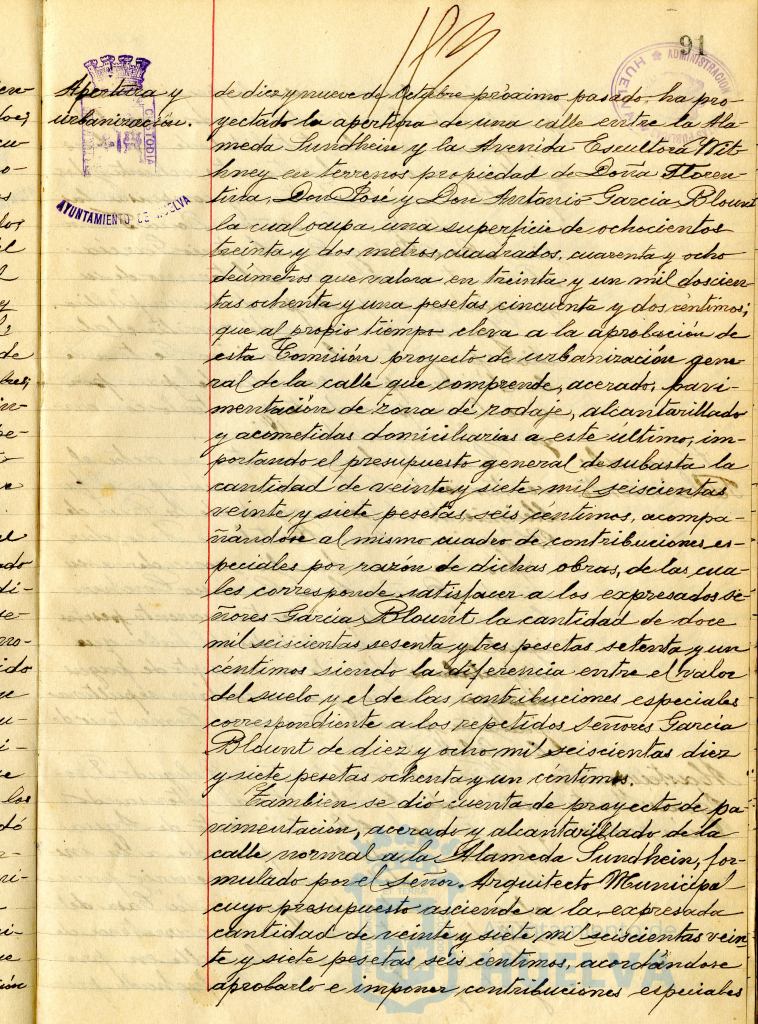 91
ADMINISTRACION
HUEL
CUSTODIA
AYUNTAMIENTO DE HUELVA
Apertura y
urbanización.
de diez y nueve de Octubre próximo pasado, ha pro-
yectado la apertura de una calle entre la Ala-
meda Sundhein y la Avenida Escultora Wit-
hney en terrenos propiedad de Doña Floren-
tina, Don José y Don Antonio García Blount
la cual ocupa una superficie de ochocientos
treinta y dos metros cuadrados, cuarenta y ocho
decímetros que valora en treinta y un mil doscien-
tas ochenta y una pesetas cincuenta y dos céntimos;
que al propio tiempo eleva a la aprobación de
esta Comisión proyecto de urbanización gene-
ral de la calle que comprende, acerado, pavi-
mentación de zona de rodaje, alcantarillado
y acometidas domiciliarias a este último, im-
portando el presupuesto general de subasta la
cantidad de veinte y siete mil seiscientas
veinte y siete pesetas seis céntimos, acompa-
ñándose al mismo cuadro de contribuciones es-
peciales por razón de dichas obras, de las cua-
les corresponde satisfacer a los expresados se-
ñores García Blount la cantidad de doce
mil seiscientas sesenta y tres pesetas setenta y un
céntimos siendo la diferencia entre el valor
del suelo y el de las contribuciones especiales
correspondiente a los repetidos Señores García
Blount de diez y ocho mil seiscientas diez
y siete pesetas ochenta y un céntimos.
Tambien se dió cuenta de proyecto de pa-
vimentación, acerado y alcantarillado de la
calle normal a la Alameda Sundhein, for-
mulado por el Señor Arquitecto Municipal
cuyo presupuesto asciende a la expresada
cantidad de veinte y siete mil seiscientas vein
te y siete pesetas seis céntimos, acordándose
aprobarlo e imponer contribuciones especiales
Ayuntamiento de
HUELVA